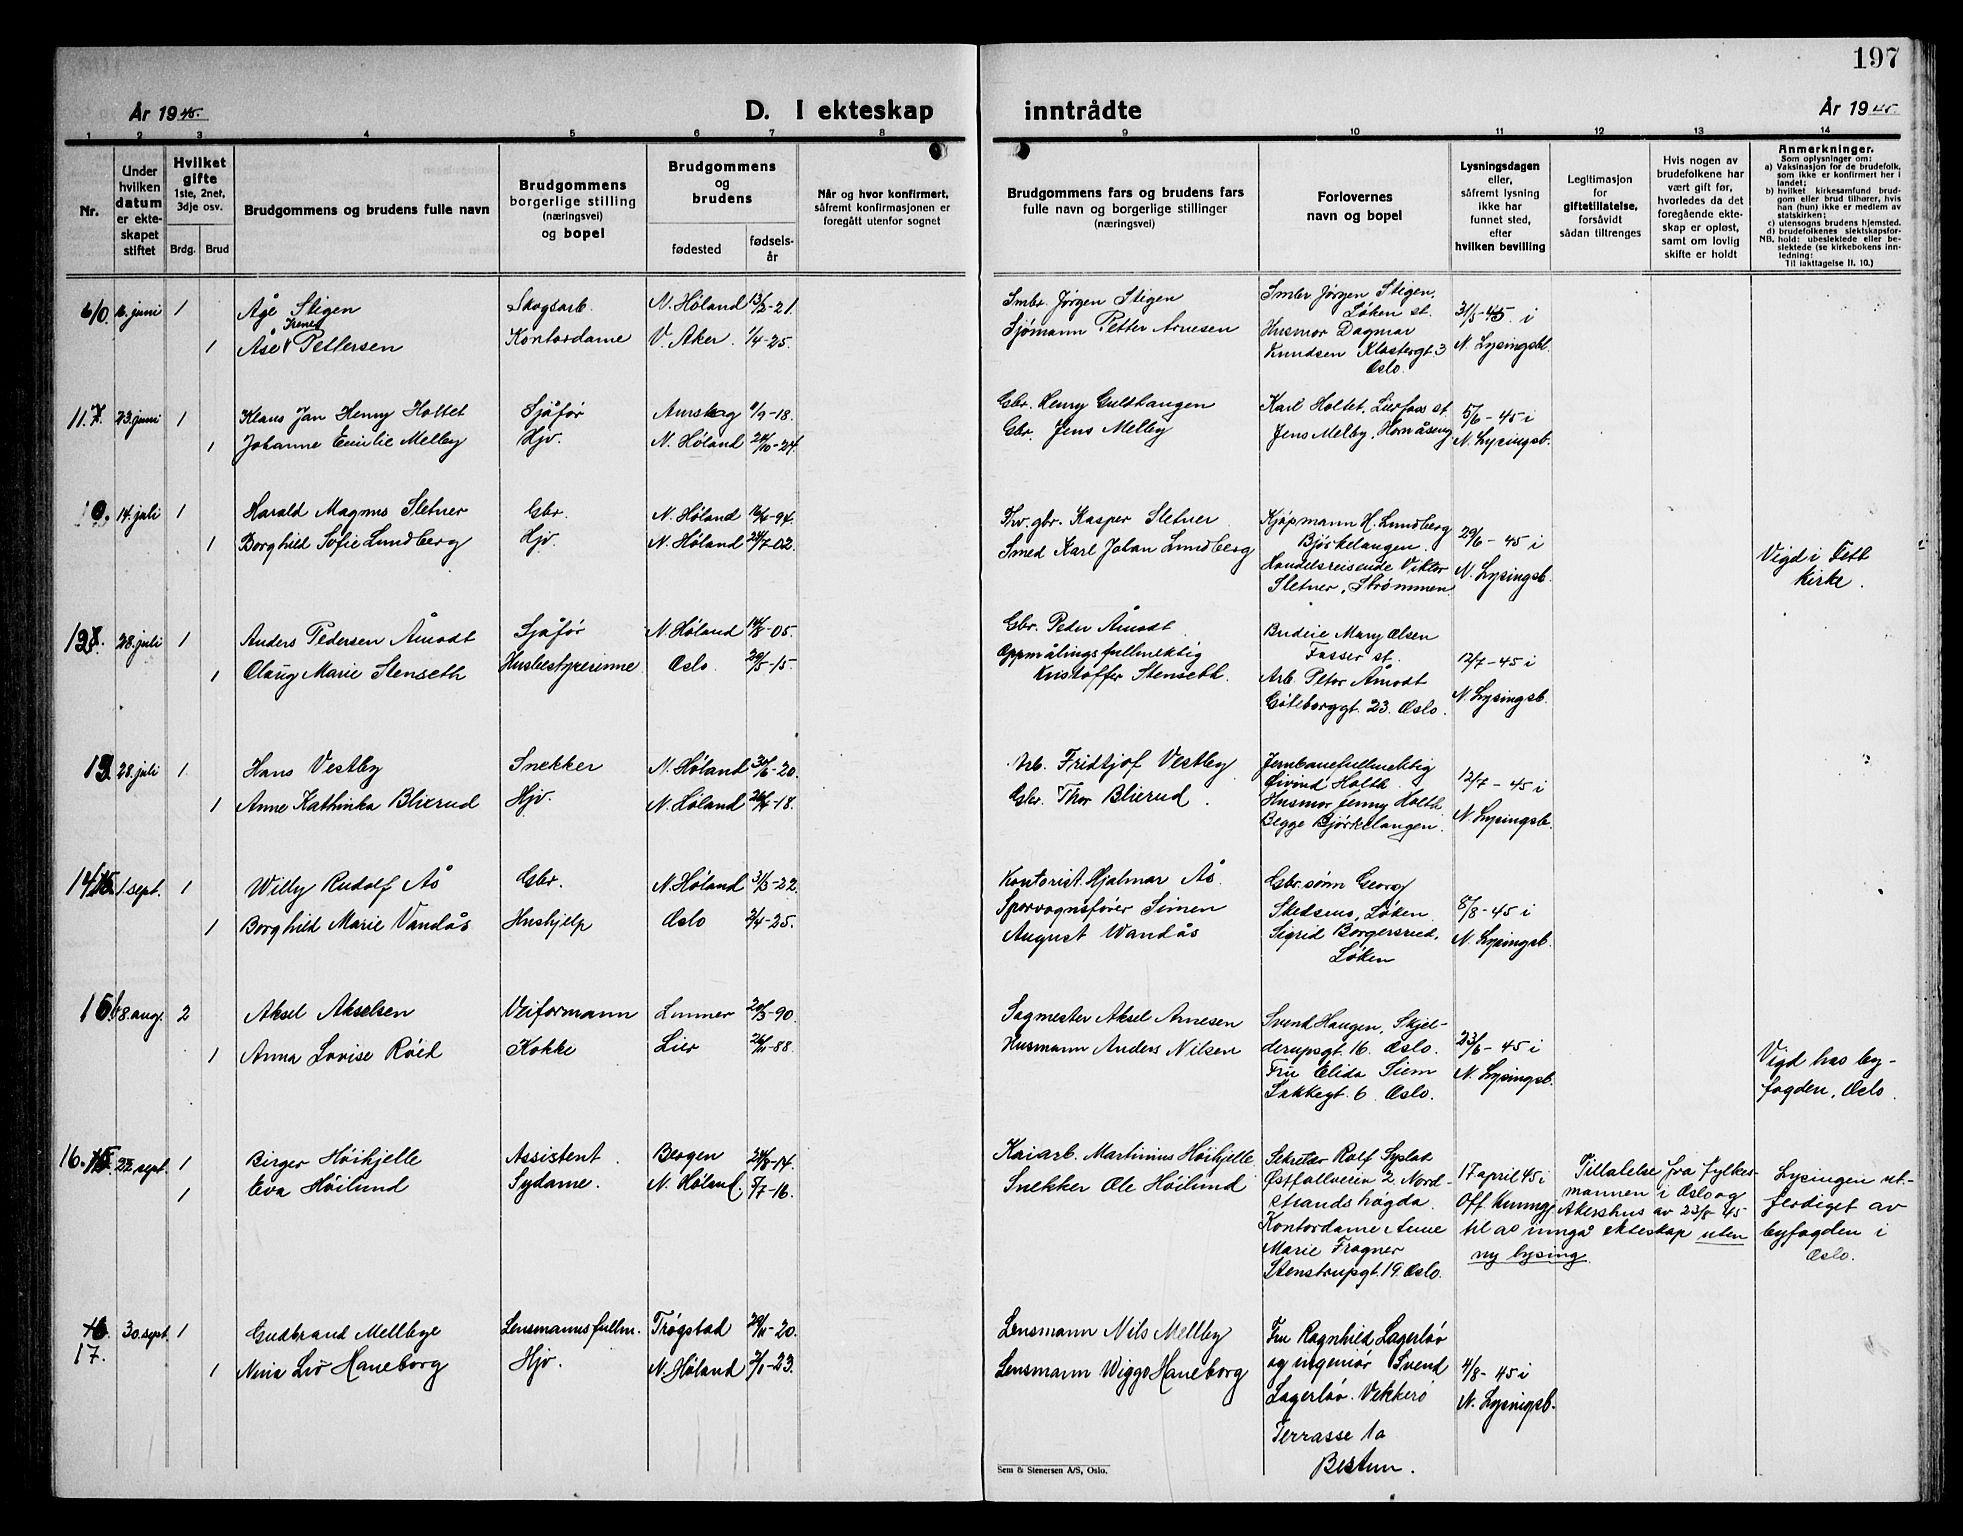 197
År 1945.
D. I ekteskap
inntrådte
År 1945.
1 2 3 4 5 6 7 8
9 10 11 12 13 14
Nr.
Under hvilken datum er ekteskapet stiftet
Hvilket gifte
1ste, 2net, 3dje osv.
Brdg. Brud
Brudgommens og brudens fulle navn
Brudgommens borgerlige stilling (næringsvei) og bopel
Brudgommens og brudens
fødested
fødselsår
Når og hvor konfirmert,
såfremt konfirmasjonen er
foregått utenfor sognet
Brudgommens fars og brudens fars
fulle navn og borgerlige stillinger
(næringsvei)
Forlovernes
navn og bopel
Lysningsdagen
eller,
såfremt lysning
ikke har
funnet sted,
efter
hvilken bevilling
Legitimasjon
for
giftetillatelse,
forsåvidt
sådan tiltrenges
Hvis nogen av
brudefolkene har
vært gift før,
hvorledes da det
foregående ekte-
skap er opløst,
samt om lovlig
skifte er holdt
Anmerkninger.
Som oplysninger om:
a) Vaksinasjon for de brudefolk,
som ikke er konfirmert her i
landet;
b) hvilket kirkesamfund brud-
gom eller brud tilhører, hvis
han (hun) ikke er medlem av
statskirken;
c) utensogns brudens hjemsted.
d) brudefolkenes slektskapsfor-
NB. hold: ubeslektede eller be-
slektede (se kirkebokens inn-
ledning:
Til iakttagelse II. 10.)
juni 1 Åge Stigen Skogsarb. N. Høland 13/2-21.
1 Åse Irene Pettersen Kontordame V. Aker. 1/4-25.
Smbr. Jørgen Stigen
Sjømann Petter Arnesen
Smbr Jørgen Stigen,
Løken st.
Husmor Dagmar
Knudsen Klostergt. 3
Oslo.
31/5-45 i
N. Lysingsbl.
11. 23. juni 1 Klaus Jan Henry Holtet Sjåfør Aurskog 9/9-18.
1 Johanne Emilie Melby Hjv. N. Høland 24/10-24.
Gbr. Henry Gulthaugen
Gbr. Jens Melby
Karl Holtet, Lierfoss st.
Jens Melby, Hornåseng
5/6-45 i
N. Lysingsb.
14. juli 1 Harald Magnus Sletner Gbr. N. Høland 16/6-94.
1 Borghild Sofie Lundberg Hjv. N. Høland 24/7-02.
Fhv. gbr. Kasper Sletner
Smed Karl Johan Lundberg
Kjøpmann H. Lundberg
Bjørkelangen.
Handelsreisende Viktor
Sletner, Strømmen
29/6-45 i
N. Lysingsb.
Vigd i Fett
kirke.
28. juli 1 Anders Pedersen Åmodt Sjåfør N. Høland 14/8-05.
1 Olaug Marie Stenseth Husbestyrerinne Oslo. 29/5-15.
Gbr. Peder Åmodt
Oppmålingsfullmektig
Kristoffer Stenseth.
Budeie Mary Olsen
Fosser st.
Arb. Petor Åmodt
Göteborggt. 23. Oslo.
12/7-45 i
N. Lysingsb.
13 28. juli 1. Hans Vestby Snekker N. Høland 30/6-20.
1 Anne Kathinka Blixrud Hjv. N. Høland 26/4-18.
Arb. Fridtjof Vestby
Gbr. Thor Blixrud.
Jernbanefullmektig
Øivind Holth.
Husmor Jenny Holth
Begge Bjørkelangen.
12/7-45 i
N. Lysingsb.
14 1. sept. 1 Willy Rudolf Ås Gbr. N. Høland 31/3-22.
1 Borghild Marie Vandås Hushjelp Oslo 2/4-25.
Kontorist. Hjalmar Ås.
Sporvognsfører Simen
August Wandås
Gbr. sønn Georg
Skedsmo, Løken.
Sigrid Borgersrud,
Løken
8/8-45 i
N. Lysingsb.
15 8. aug. 2 Aksel Akselsen Veiformann Lunner 20/3-90.
1 Anna Lovise Röed Kokke Lier 26/11-88.
Sagmester Aksel Arnesen
Husmann Anders Nilsen
Svend Haugen, Skjel-
derupsgt 16. Oslo.
Fru Elida Siem
Lakkegt. 6 Oslo.
23/6-45 i
N. Lysingsb.
Vigd hos by-
fogden, Oslo.
16. 22 sept. 1 Birger Höikjelle Assistent. Bergen 24/8-14.
1 Eva Höilund Sydame. N. Høland. 5/7-16.
Kaiarb. Martinius Höikjelle
Snekker Ole Höilund
Sekretær Rolf
Østfallveien 2. Nord-
strandshögda.
Kontordame Anne
Marie Fragner
Stenstrupsgt. 19. Oslo.
17 april 45 i
Off. Kunngj.
Tillatelse fra fylkes-
mannen i Oslo og
Akershus av 23/8 45
til at inngå ekteskap uten
ny lysing.
Lysingen ut-
ferdiget av
byfogden i
Oslo.
17. 30. sept. 1 Gudbrand Mellbye Lensmannsfullm. Trögstad 29/11-20.
1 Nina Liv Haneborg Hjv. N. Høland 2/1-23.
Lensmann Nils Mellby
Lensmann Wiggo Haneborg
Fru Ragnhild Lagerløv
og ingeniør Svend
Lagerløv. Vekkerö
Terrasse 1a
Bestun.
4/8-45 i
N. Lysingsb.
Sem & Stenersen A/S, Oslo.